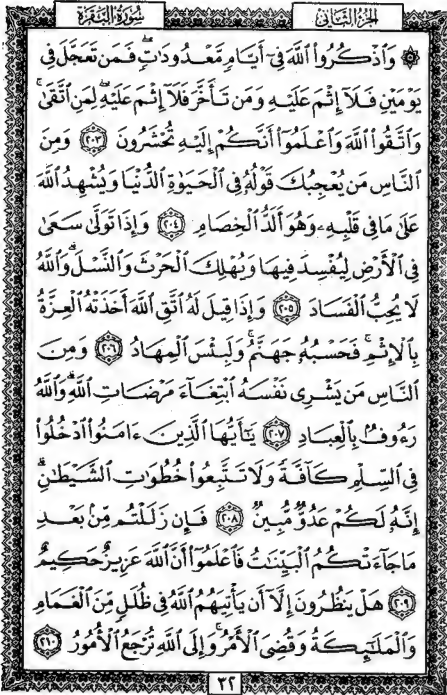 سُورَةُ البَقَرَةِ الجزء الثاني
۞ وَٱذْكُرُواْ ٱللَّهَ فِىٓ أَيَّامٍ مَّعْدُودَٰتٍ ۚ فَمَن تَعَجَّلَ فِى
يَوْمَيْنِ فَلَآ إِثْمَ عَلَيْهِ وَمَن تَأَخَّرَ فَلَآ إِثْمَ عَلَيْهِ ۚ لِمَنِ ٱتَّقَىٰ ۗ
وَٱتَّقُواْ ٱللَّهَ وَٱعْلَمُوٓاْ أَنَّكُمْ إِلَيْهِ تُحْشَرُونَ ٢٠٣ وَمِنَ
ٱلنَّاسِ مَن يُعْجِبُكَ قَوْلُهُۥ فِى ٱلْحَيَوٰةِ ٱلدُّنْيَا وَيُشْهِدُ ٱللَّهَ
عَلَىٰ مَا فِى قَلْبِهِۦ وَهُوَ أَلَدُّ ٱلْخِصَامِ ٢٠٤ وَإِذَا تَوَلَّىٰ سَعَىٰ
فِى ٱلْأَرْضِ لِيُفْسِدَ فِيهَا وَيُهْلِكَ ٱلْحَرْثَ وَٱلنَّسْلَ ۗ وَٱللَّهُ
لَا يُحِبُّ ٱلْفَسَادَ ٢٠٥ وَإِذَا قِيلَ لَهُ ٱتَّقِ ٱللَّهَ أَخَذَتْهُ ٱلْعِزَّةُ
بِٱلْإِثْمِ ۚ فَحَسْبُهُۥ جَهَنَّمُ ۚ وَلَبِئْسَ ٱلْمِهَادُ ٢٠٦ وَمِنَ
ٱلنَّاسِ مَن يَشْرِى نَفْسَهُ ٱبْتِغَآءَ مَرْضَاتِ ٱللَّهِ ۗ وَٱللَّهُ
رَءُوفٌۢ بِٱلْعِبَادِ ٢٠٧ يَٰٓأَيُّهَا ٱلَّذِينَ ءَامَنُواْ ٱدْخُلُواْ
فِى ٱلسِّلْمِ كَآفَّةً وَلَا تَتَّبِعُواْ خُطُوَٰتِ ٱلشَّيْطَٰنِ ۚ
إِنَّهُۥ لَكُمْ عَدُوٌّ مُّبِينٌ ٢٠٨ فَإِن زَلَلْتُم مِّنۢ بَعْدِ
مَا جَآءَتْكُمُ ٱلْبَيِّنَٰتُ فَٱعْلَمُوٓاْ أَنَّ ٱللَّهَ عَزِيزٌ حَكِيمٌ
٢٠٩ هَلْ يَنظُرُونَ إِلَّآ أَن يَأْتِيَهُمُ ٱللَّهُ فِى ظُلَلٍ مِّنَ ٱلْغَمَامِ
وَٱلْمَلَٰٓئِكَةُ وَقُضِىَ ٱلْأَمْرُ ۚ وَإِلَى ٱللَّهِ تُرْجَعُ ٱلْأُمُورُ ٢١٠
٣٢